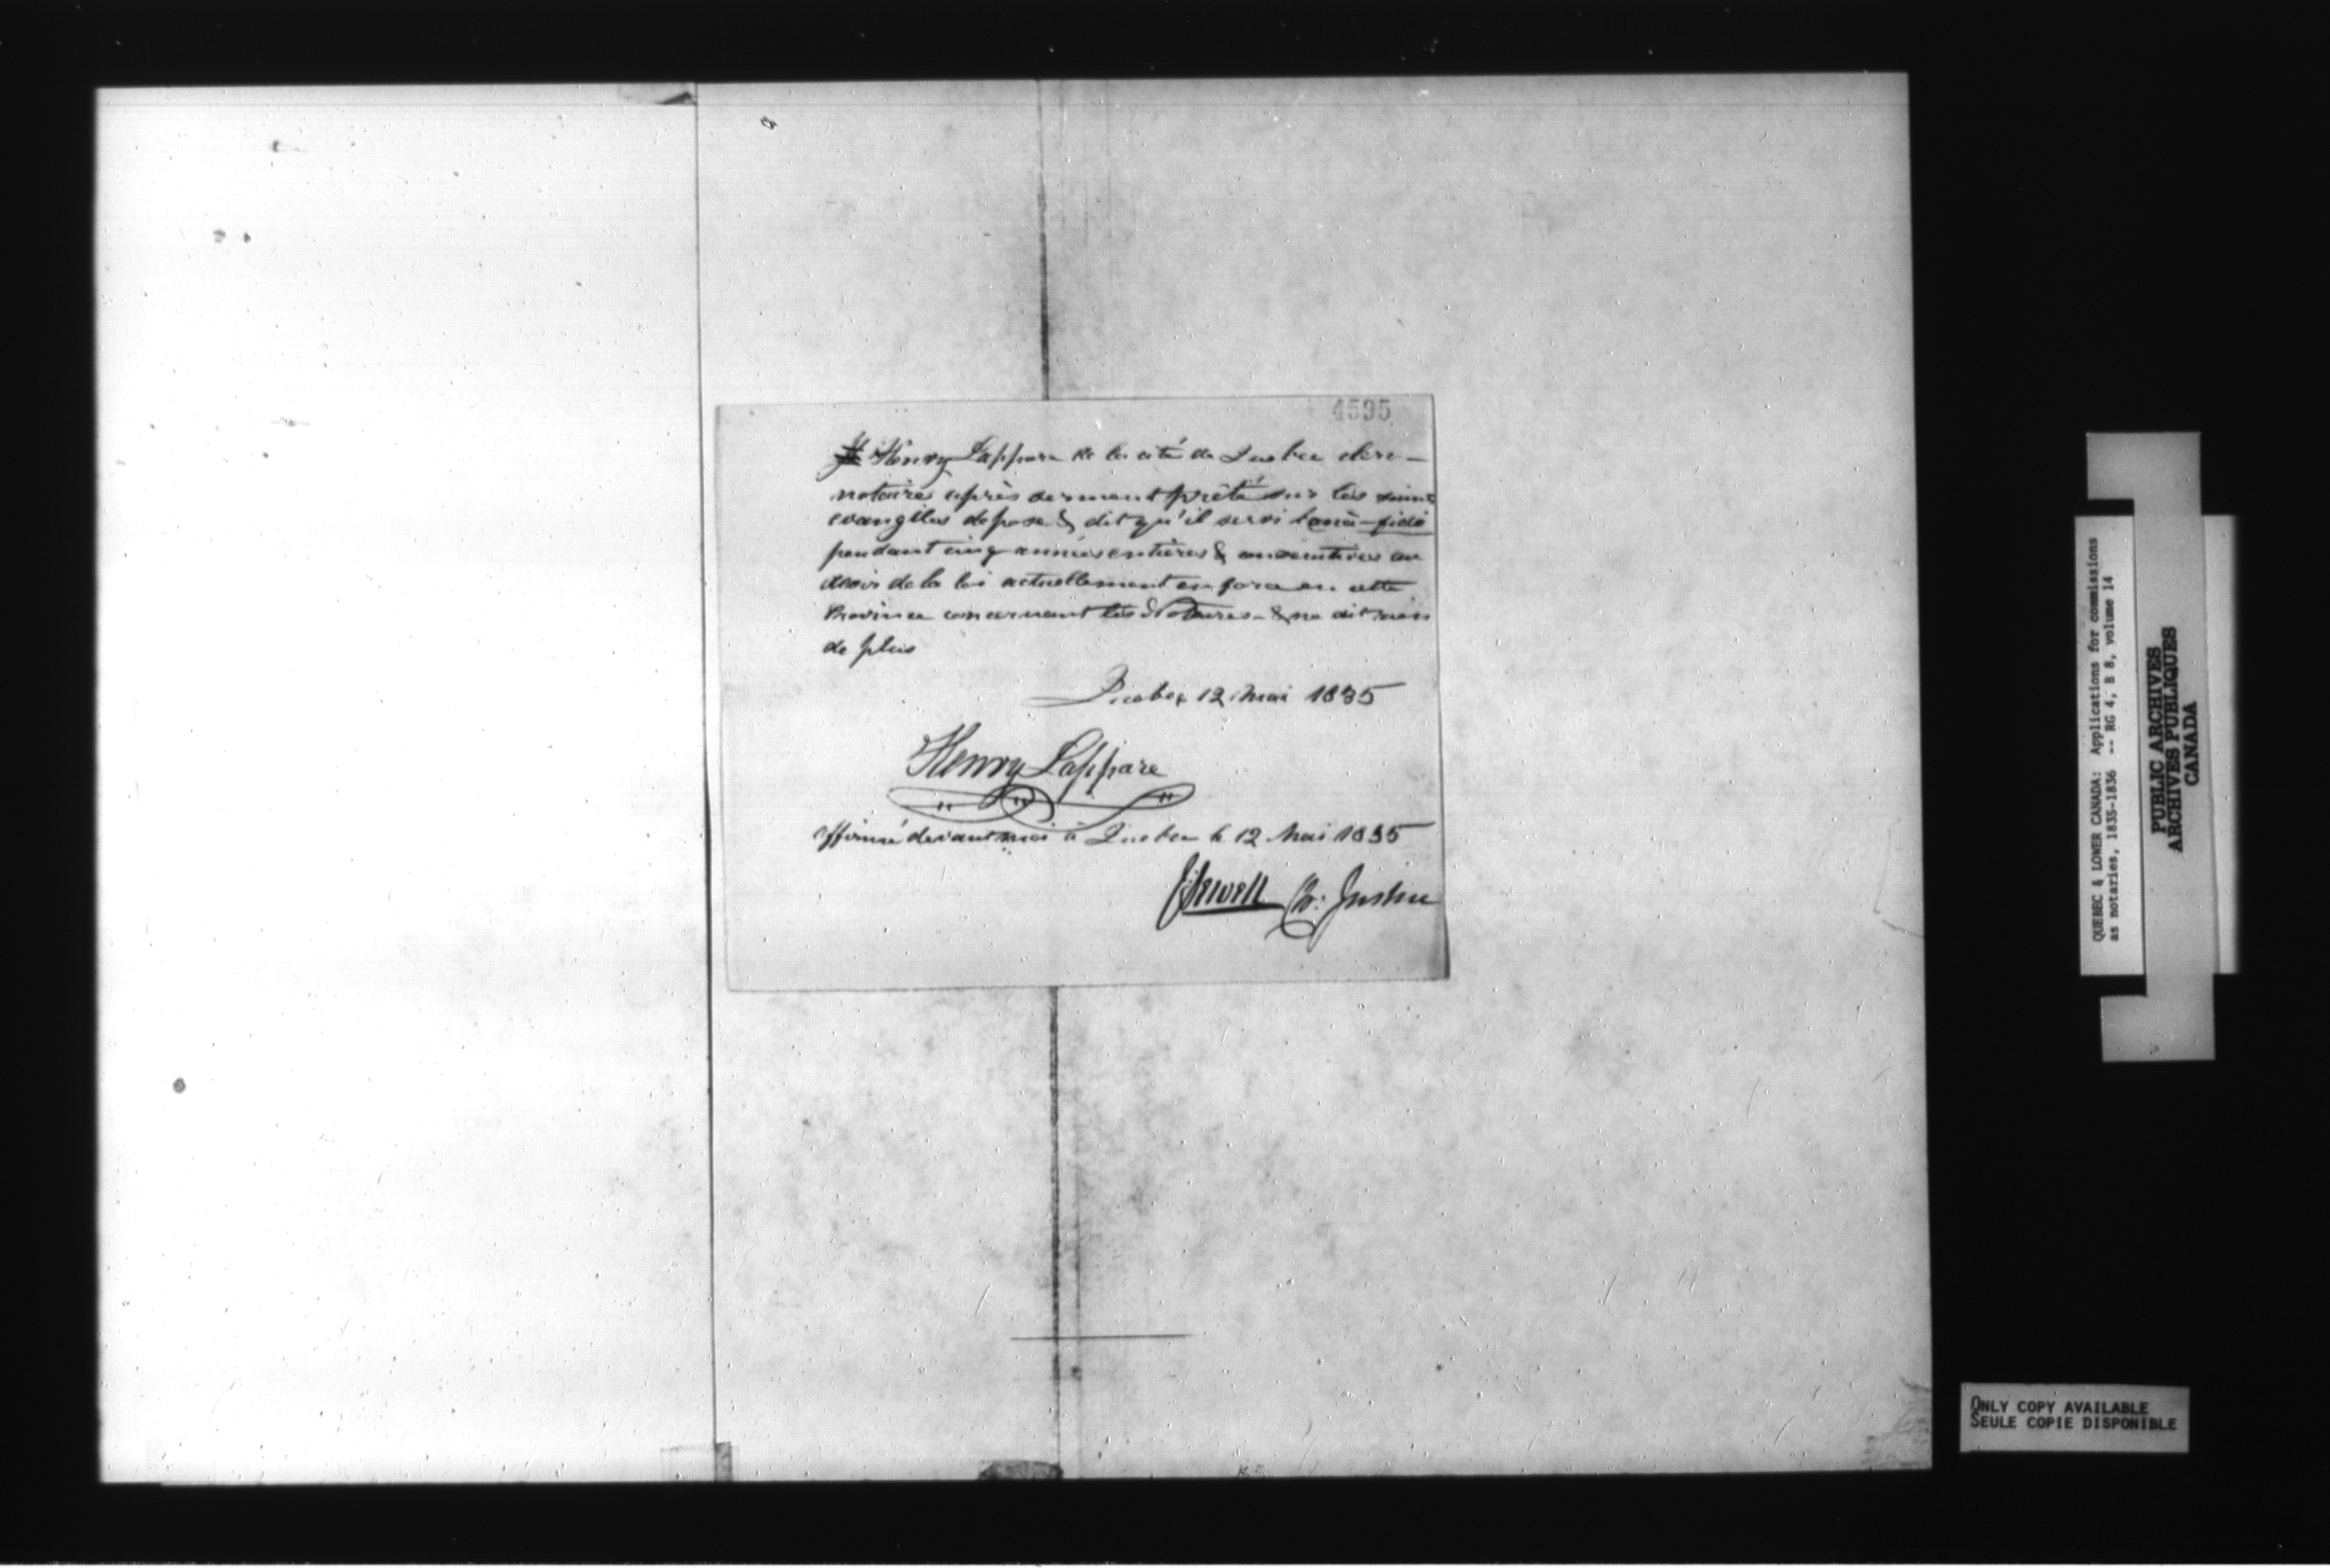 4595
Henry Lappare de la cité de Quebec clerc-
notaire après serment prêté sur les saints
evangiles depose & dit qu'il servi bonâ-fide
pendant cinq années entières & consecutives au
desir de la loi actuellement en force en cette
Province concernant les Notaires - & ne dit rien
de plus
Quebec 12 Mai 1835
Henry Lappare
Affirmé devant moi à Quebec le 12 Mai 1835
J Sewell Ch: Justice
QUEBEC & LOWER CANADA: Applications for commissions
as notaries, 1835-1836 -- RG 4, B 8, volume 14
PUBLIC ARCHIVES
ARCHIVES PUBLIQUES
CANADA
ONLY COPY AVAILABLE
SEULE COPIE DISPONIBLE